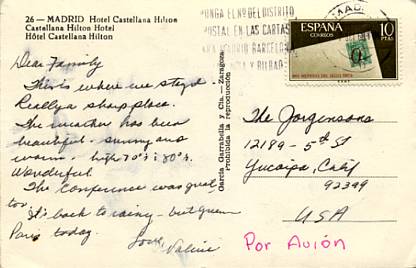 26 — MADRID Hotel Castellana Hilton
Castellana Hilton Hotel
Hôtel Castellana Hilton
PONGA EL Nº DEL DISTRITO
POSTAL EN LAS CARTAS
MADRID BARCELON
Y BILBAO
MADRID
ESPAÑA
CORREOS
10
PTAS
Garcia Garrabella y Cia. - Zaragoza
Prohibida la reproducción
Dear Family
This is where we stayed.
Really a sharp place.
The weather has been
beautiful - sunny and
warm. high 70's & 80's.
Wonderful.
The Conference was great
too.
It's back to rainy - but green
Paris today.
Love,
Valerie
The Jorgensons
12189 - 5th St
Yucaipa, Calif
92399
USA
Por Avión